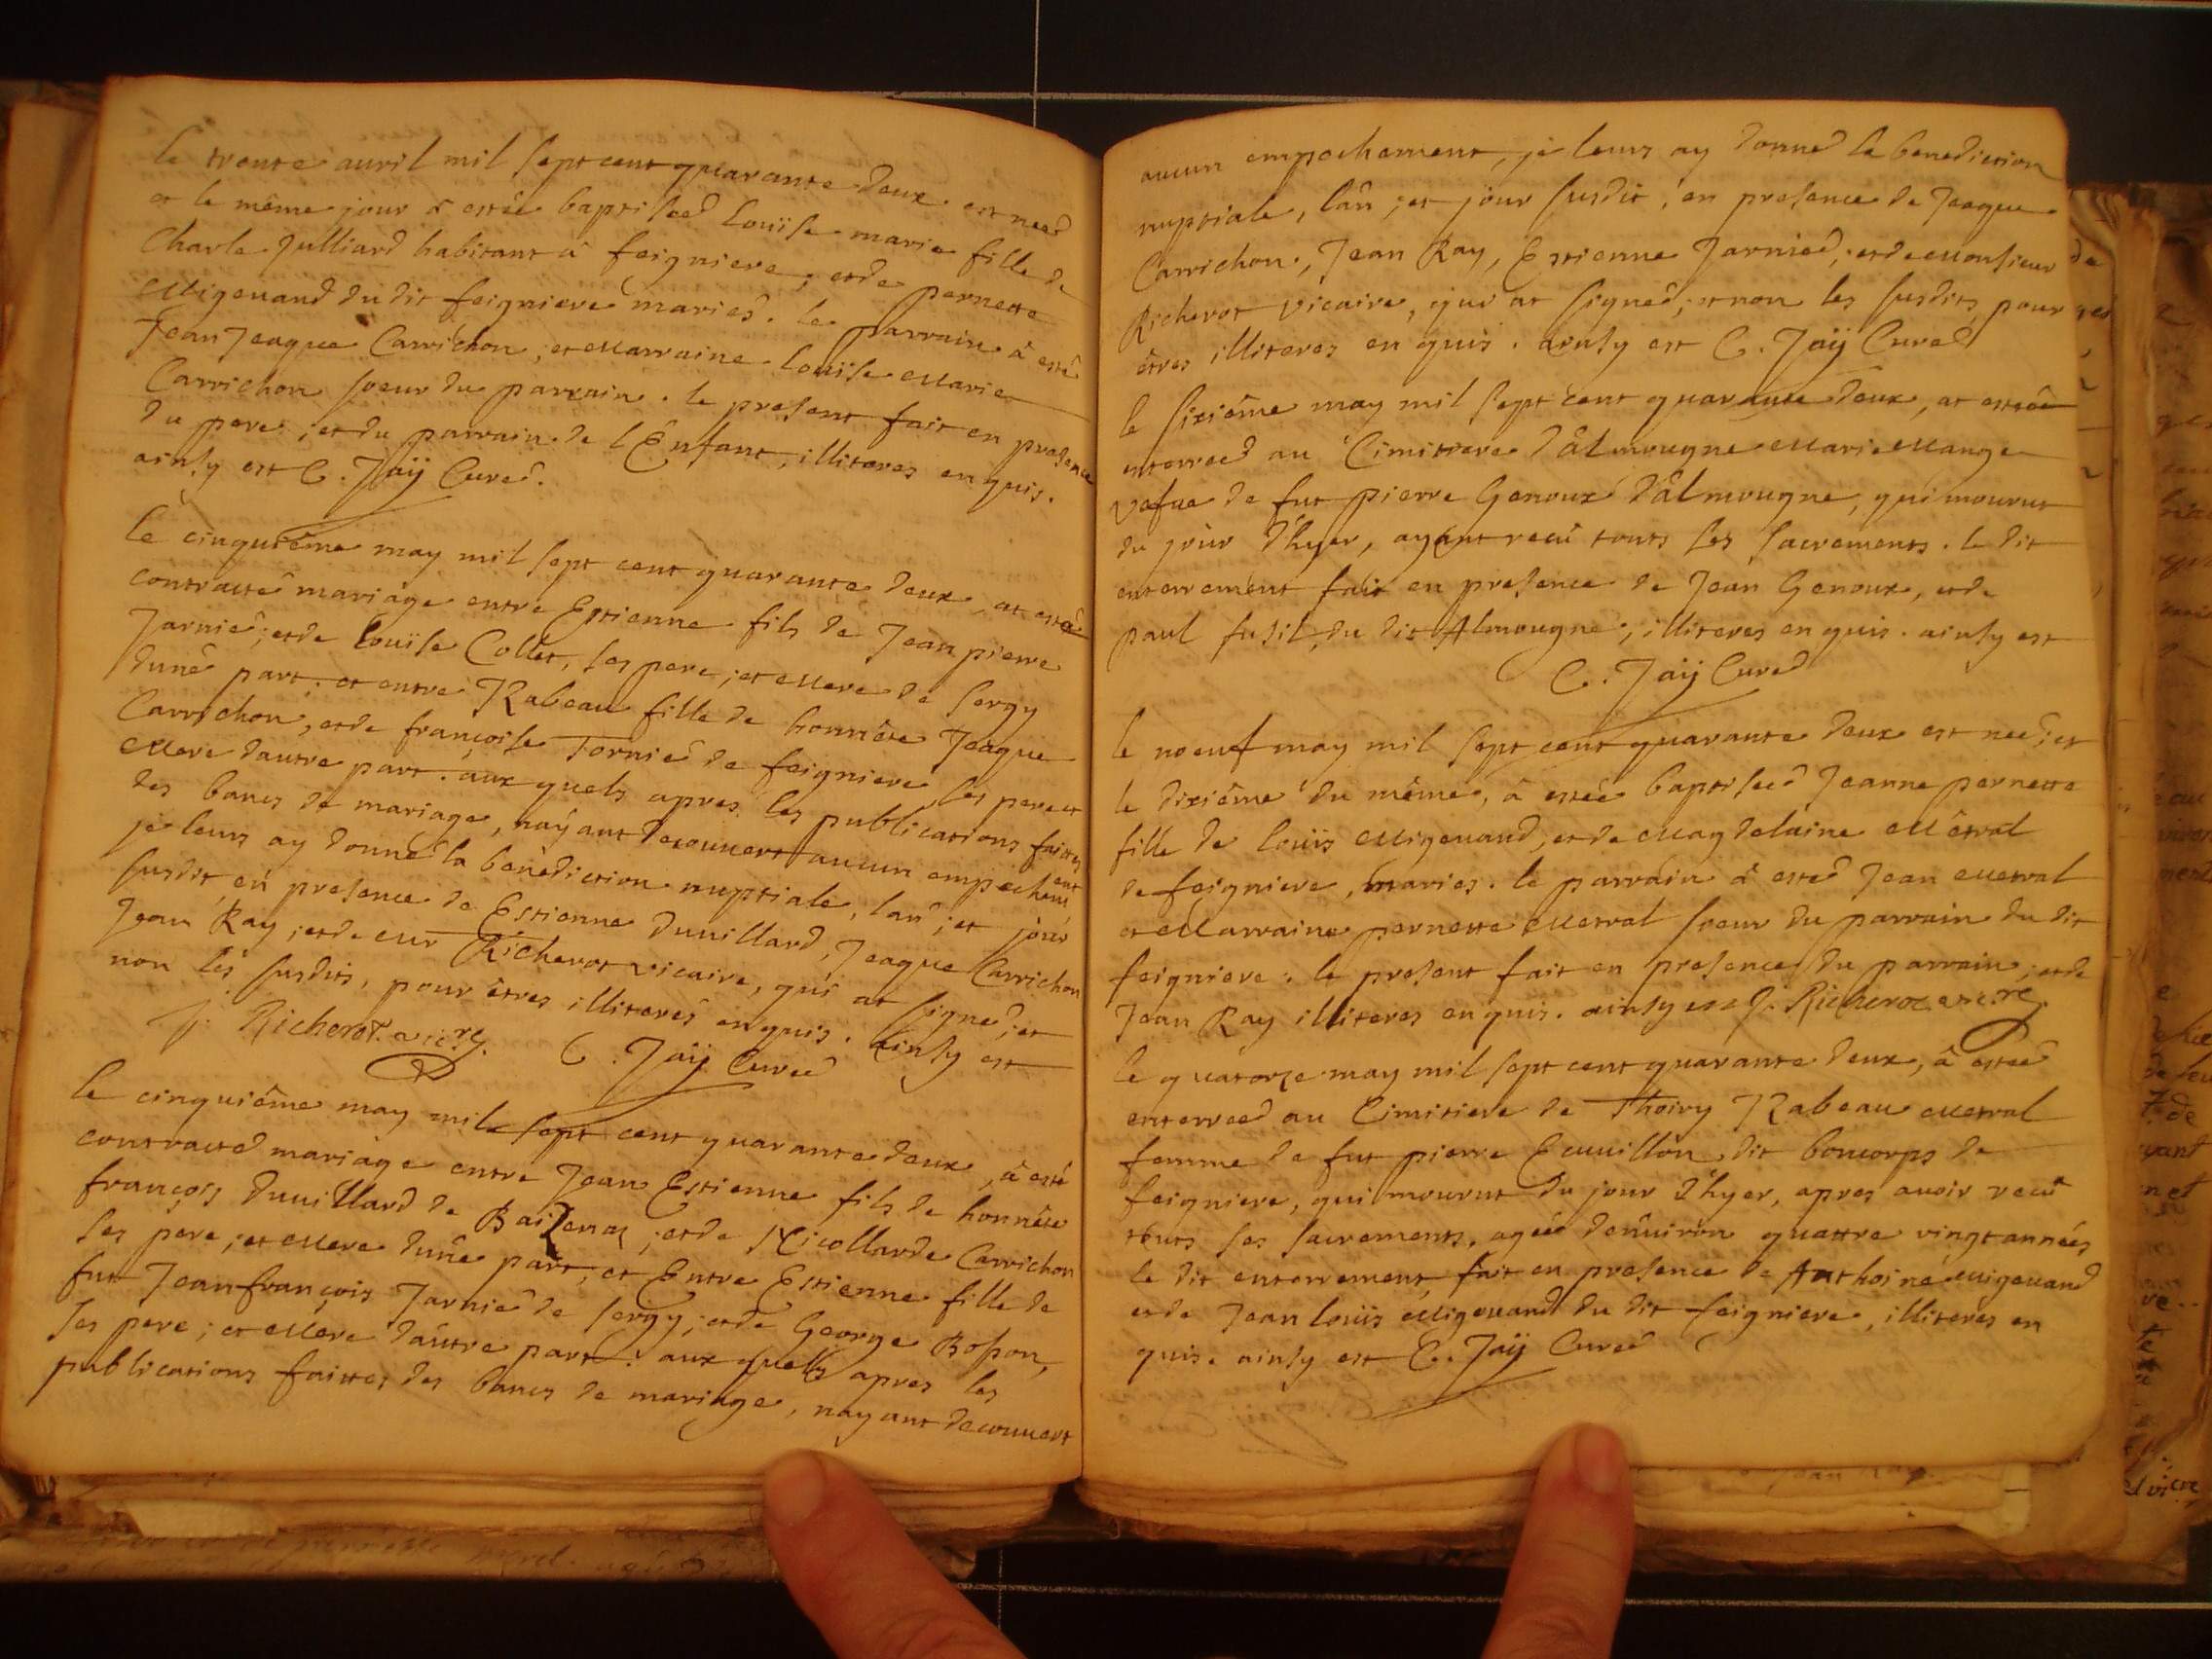 le trente auril mil sept cent quarante deux est neeé
et le même jour â estée baptiseé Louïse marie fille de
Charle Julliard habitant â feigniere, et de pernette
Migeuand du dit feigniere mariés. le parrain â esté
Jean Jeaque Carrichon, et Marraine Louïse Marie
Carrichon soeur du parrain. le present fait en presence
du pere, et du parrain de l'Enfant, illiteres enquis.
ainsy est C. Jaÿ Cureé.
le cinquiême may mil sept cent quarante deux, at esteé
contracté mariage entre Estienne fils de Jean pierre
Jarnieé, et de Louïse Collet, ses pere, et Mere de sergy
dune part, et entre JZabeau fille de honnête Jeaque
Carrichon, et de françoise Tornieé de feigniere, ses pere et
Mere dautre part. aux quels apres les publications faittes
des bancs de mariage, naÿant decouuert aucun empechement
je leurs ay donné la benediction nuptiale, lan, et jour
susdit, en presence de Estienne Duuillard, Jeaque Carrichon
Jean Ray, et de Mr Richerot vicaire, qui at signeé, et
non les susdits, pour êtres illiterés enquis. ainsy est
J. Richerot vic.re C. Jaÿ Cureé
le cinquiême may mil sept cent quarante deux, â esté
contracteé mariage entre Jean Estienne fils de honnête
françois Duuillard de Baizenas, et de Nicollarde Carrichon
ses pere, et Mere dune part, et Entre Estienne fille de
fut Jean françois Jarnieé de sergy, et de George Boson,
ses pere, et Mere dautre part. aux quells apres les
publications faittes des bancs de mariage, nayant decouuert
aucun empechement, je leurs ay donneé la benediction
nuptiale, lan, et jour susdit, en presence de Jeaque
Carrichon, Jean Ray, Estienne Jarnieé, et de Monsieur
Richerot vicaire, qui at signeé, et non les susdits, pour
êtres illiteres enquis. ainsy est C. Jaÿ Cureé
le sixiême may mil sept cent quarante deux, at estée
enterreeé au Cimitiere d'âlmougne Marie Mange
vefue de fut pierre Genoux d'âlmougne, qui mourut
du jour d'hyer, ayant recu touts ses sacrements. le dit
enterrement fait en presence de Jean Genoux, et de
paul fusil, du dit Almougne, illiteres enquis. ainsy est
C. Jaÿ Cureé
le noeuf may mil sept cent quarante deux est neeé, et
le dixiême du même, â estée baptiseeé Jeanne pernette
fille de Louïs Migeuand, et de Magdelaine Mêtral
de feigniere, mariés. le parrain â esteé Jean Metral
et Marraine pernette Metral soeur du parrain du dit
feigniere. le present fait en presence du parrain, et de
Jean Ray illiteres enquis. ainsy est J. Richerot vic.re
le quatorze may mil sept cent quarante deux, â esteé
enterreé au Cimitiere de Thoiry JZabeau Metral
femme de fut pierre Ecuuillon dit boncorps de
feigniere, qui mourut du jour d'hyer, apres auoir recut
touts ses sacrements, agée denuiron quattre vingt années
le dit enterrement fait en presence de Anthoine Migeuand
et de Jean Louïs Migeuand du dit feigniere, illiterés en
quis. ainsy est C. Jaÿ Cureé